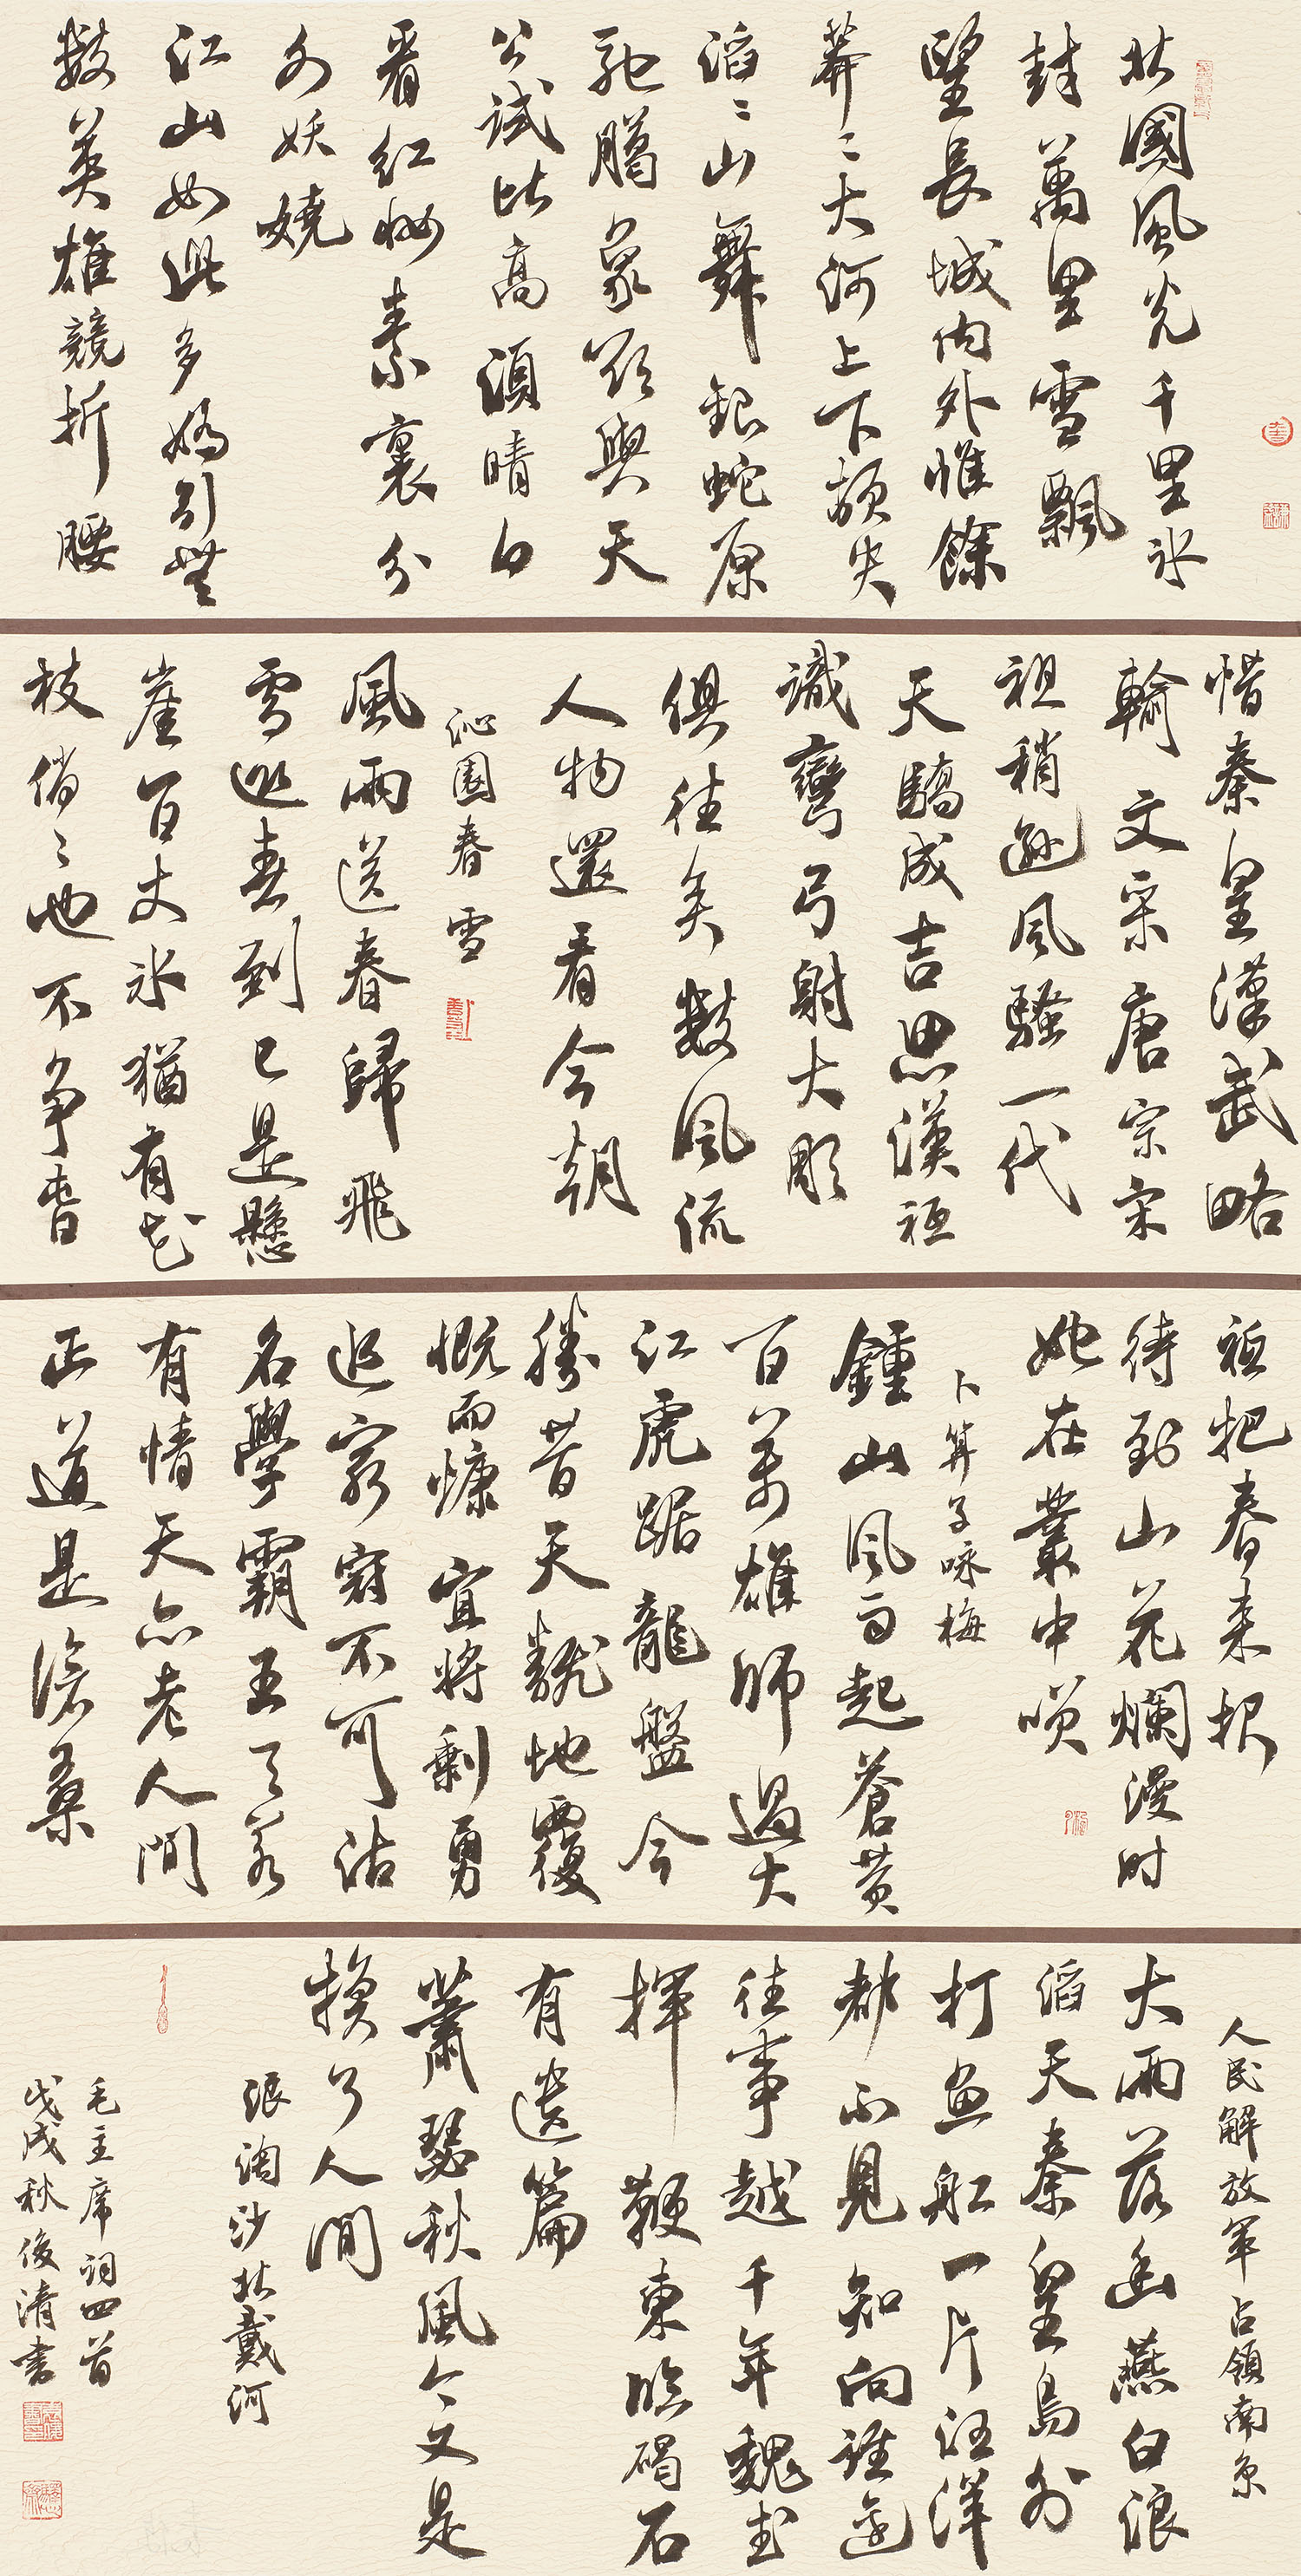 北國風光千里冰
封萬里雪飄
望長城内外惟餘
莽莽大河上下頓失
滔滔山舞銀蛇原
馳臘象欲與天
公試比高須晴日
看紅妝素裹分
外妖嬈
江山如此多嬌引無
數英雄競折腰
惜秦皇漢武略
輸文采唐宗宋
祖稍遜風騷一代
天驕成吉思漢祗
識彎弓射大彫
俱往矣數風流
人物還看今朝
沁園春雪
風雨送春歸飛
雪迎春到已是懸
崖百丈冰猶有花
枝俏俏也不争春
祗把春来報
待到山花爛漫时
她在叢中笑
卜算子咏梅
鍾山風雨起蒼黄
百萬雄師過大
江虎踞龍盤今
勝昔天翻地覆
慨而慷宜將剩勇
追窮寇不可沽
名學霸王天若
有情天亦老人間
正道是滄桑
人民解放軍占領南京
大雨落幽燕白浪
滔天秦皇島外
打魚船一片汪洋
都不見知向誰邊
往事越千年魏武
揮鞭東臨碣石
有遺篇
蕭瑟秋風今又是
換了人間
浪淘沙北戴河
毛主席詞四首
戊戌秋俊清書